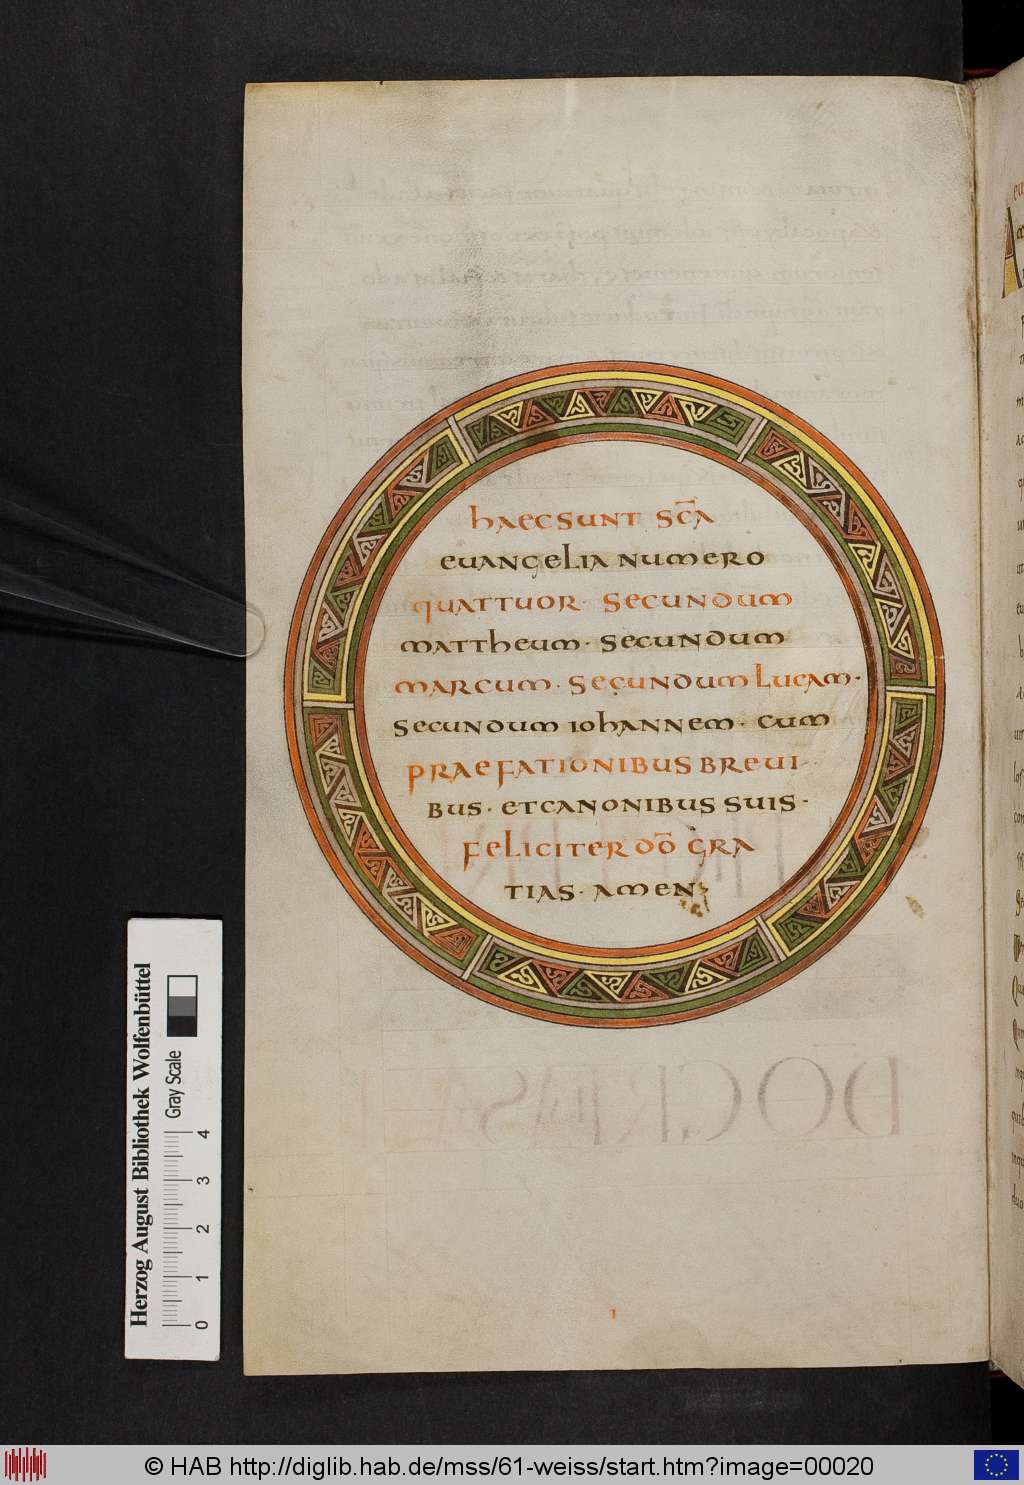 haec sunt sc̄a
euangelia numero
quattuor· secundum
mattheum· secundum
marcum· secundum lucam·
secundum iohannem· cum
praefationibus breui
bus· et canonibus suis·
feliciter dō gra
tias· amen
ı
Herzog August Bibliothek Wolfenbüttel
Gray Scale
0 1 2 3 4
© HAB http://diglib.hab.de/mss/61-weiss/start.htm?image=00020